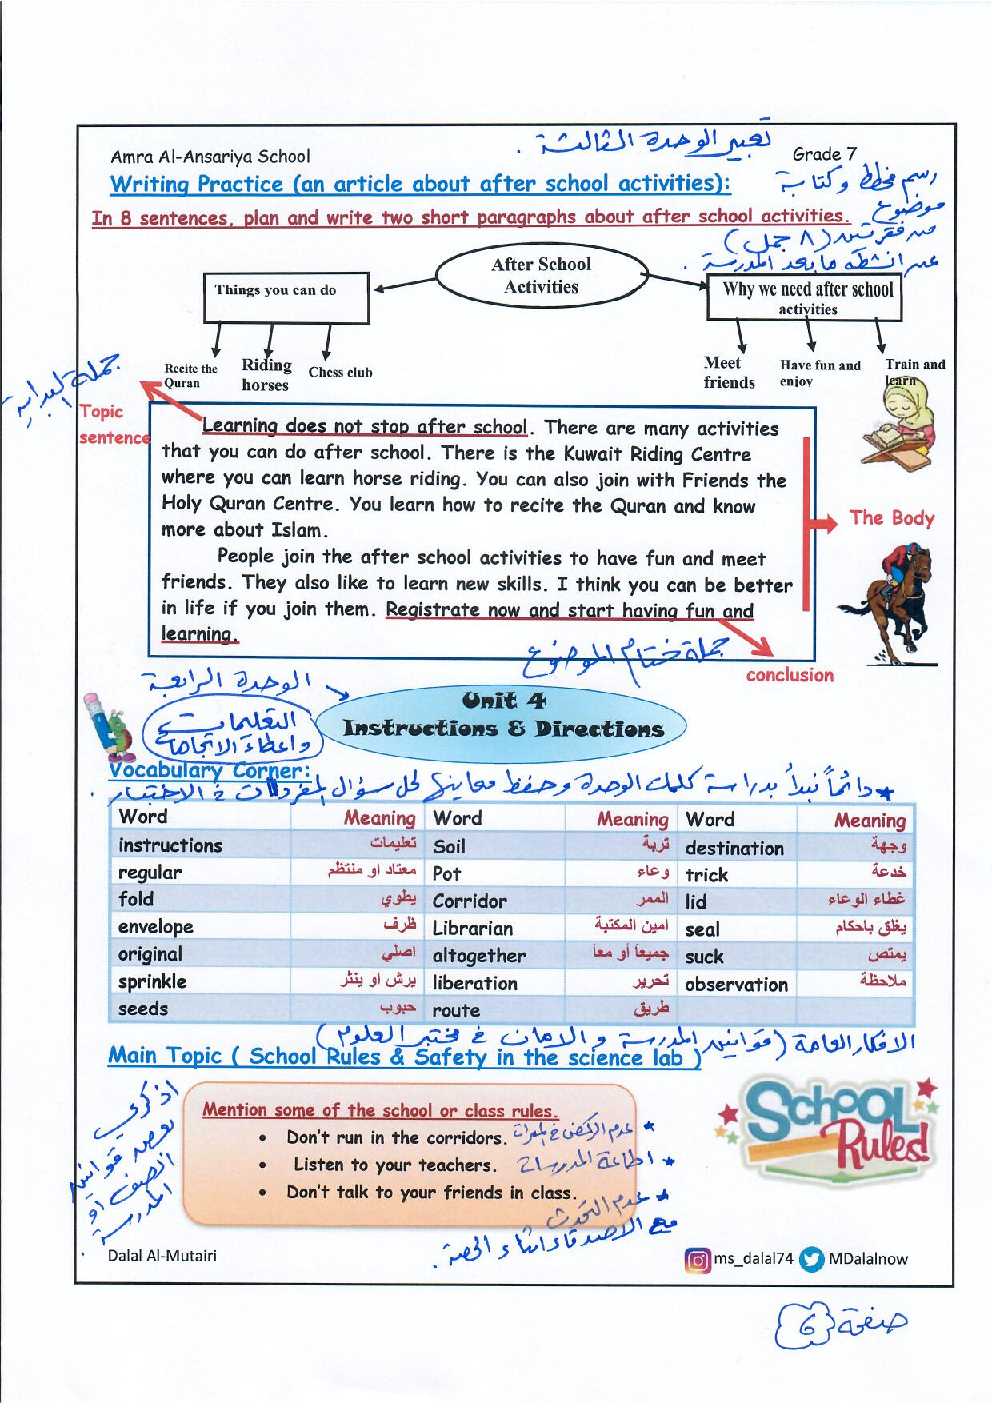 تعبير الوحدة الثالثة .
Amra Al-Ansariya School
Grade 7
Writing Practice (an article about after school activities):
رسم مخطط وكتابة
In 8 sentences, plan and write two short paragraphs about after school activities.
موضوع
من فقرتين (٨ جمل)
عن انشطة ما بعد المدرسة .
After School
Activities
Things you can do
Why we need after school
activities
Recite the
Quran
Riding
horses
Chess club
Meet
friends
Have fun and
enjoy
Train and
learn
جملة البداية
Topic
sentence
Learning does not stop after school. There are many activities
that you can do after school. There is the Kuwait Riding Centre
where you can learn horse riding. You can also join with Friends the
Holy Quran Centre. You learn how to recite the Quran and know
more about Islam.
People join the after school activities to have fun and meet
friends. They also like to learn new skills. I think you can be better
in life if you join them. Registrate now and start having fun and
learning.
The Body
جملة ختام الموضوع
conclusion
الوحدة الرابعة
التعليمات
واعطاء الاتجاهات
Unit 4
Instructions & Directions
Vocabulary Corner:
* دائماً نبدأ بدراسة كلمات الوحدة وحفظ معانيها لحل سؤال المفردات في الاختبار .
Word Meaning Word Meaning Word Meaning
instructions تعليمات Soil تربة destination وجهة
regular معتاد او منتظم Pot وعاء trick خدعة
fold يطوي Corridor الممر lid غطاء الوعاء
envelope ظرف Librarian امين المكتبة seal يغلق باحكام
original اصلي altogether جميعاً أو معاً suck يمتص
sprinkle يرش او ينثر liberation تحرير observation ملاحظة
seeds حبوب route طريق
الافكار العامة (قوانين المدرسة والامان في مختبر العلوم)
Main Topic ( School Rules & Safety in the science lab )
اذكري
بعض قوانين
الصف أو
المدرسة .
Mention some of the school or class rules.
• Don't run in the corridors. * عدم الركض في الممرات
• Listen to your teachers. * اطاعة المدرسات
• Don't talk to your friends in class.
* عدم التحدث
مع الاصدقاء اثناء الحصة .
SCHOOL
Rules!
Dalal Al-Mutairi
ms_dalal74 MDalalnow
صفحة 6